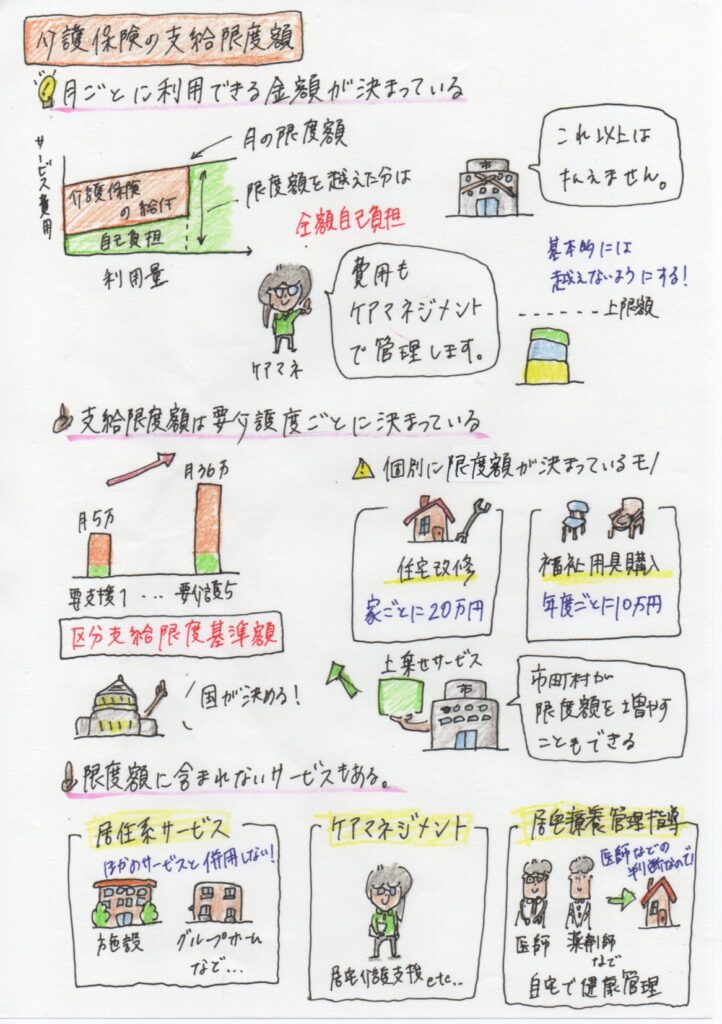 介護保険の支給限度額
月ごとに利用できる金額が決まっている
サービス費用
月の限度額
介護保険
の給付
自己負担
利用量
限度額を越えた分は
全額自己負担
市
これ以上は
払えません。
ケアマネ
費用も
ケアマネジメント
で管理します。
基本的には
越えないようにする!
上限額
支給限度額は要介護度ごとに決まっている
月5万
月36万
要支援1 ... 要介護5
区分支給限度基準額
国が決める!
個別に限度額が決まっているモノ
住宅改修
家ごとに20万円
福祉用具購入
年度ごとに10万円
上乗せサービス
市
市町村が
限度額を増やす
こともできる
限度額に含まれないサービスもある。
居住系サービス
ほかのサービスと併用しない!
施設
グループホーム
など...
ケアマネジメント
居宅介護支援etc..
居宅療養管理指導
医師などの
判断なので!
医師
薬剤師
など
自宅で健康管理